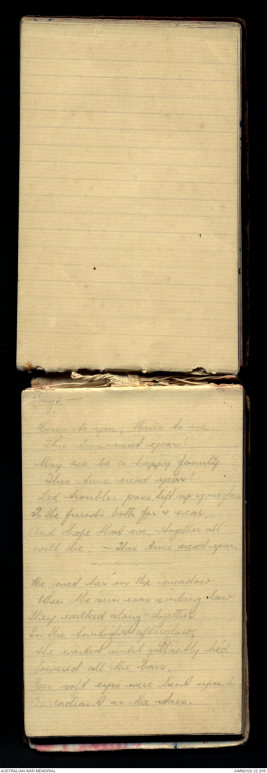 Here's to you, Here's to me,
This time next year!
May we be a happy family
This time next year!
Let troubles pass lift up your glass
To the friends both far & near
And hope that we, together all
will be. - This time next year.
He met her in the meadow
When the sun was sinking low
They walked along together
In the twilight afterglow.
She waited until gallantly he'd
lowered all the bars.
Her soft eyes were bent upon him
As radiant as the stars.
AUSTRALIAN WAR MEMORIAL